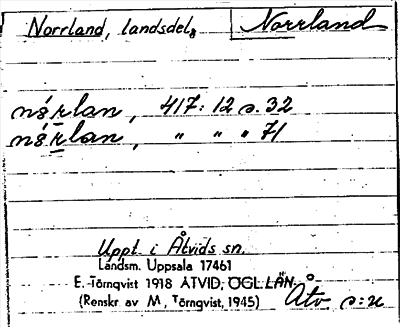 Norrland, landsdel,
Norrland
nǻrlan, 417: 12 s. 32
nǻrlan, " " " 71
Uppt. i Åtvids sn.
Landsm. Uppsala 17461
E. Törnqvist 1918 ÅTVID, ÖGL. LÄN
(Renskr. av M. Törnqvist, 1945)
Åtv s:n